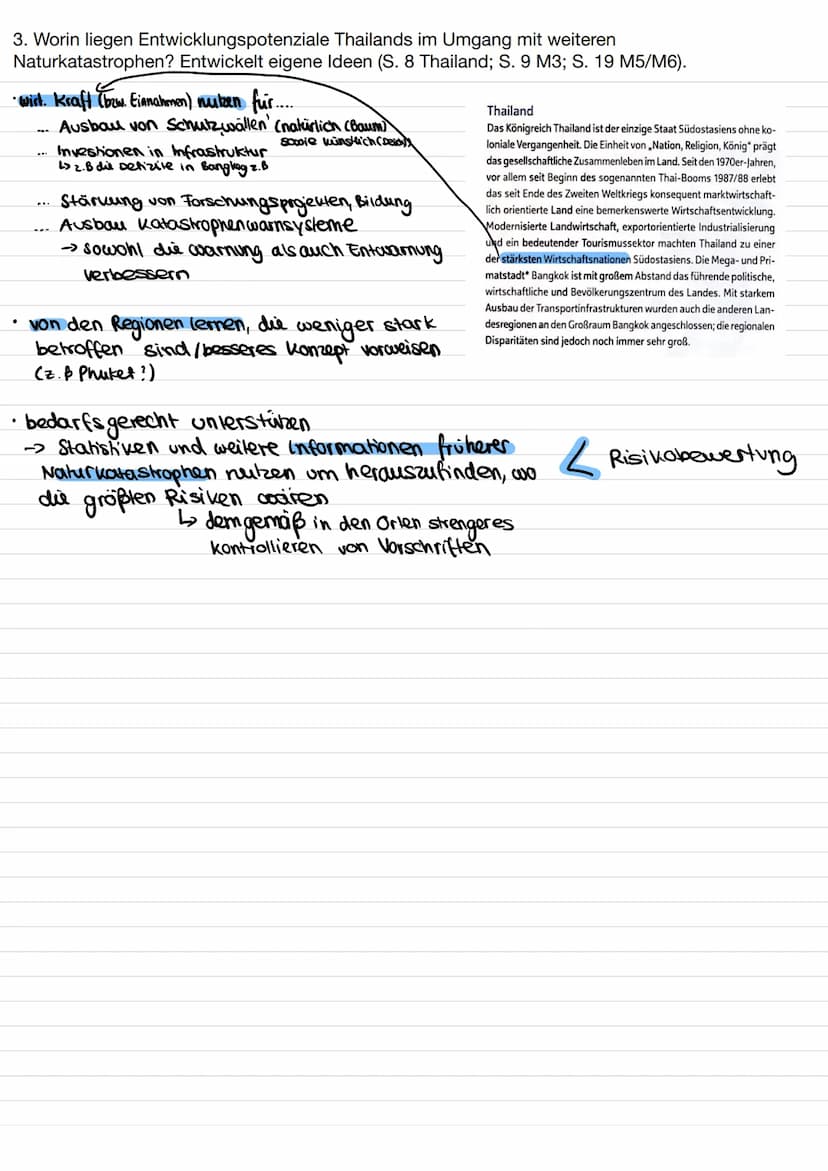 3. Worin liegen Entwicklungspotenziale Thailands im Umgang mit weiteren
Naturkatastrophen? Entwickelt eigene Ideen (S. 8 Thailand; S. 9 M3; S. 19 M5/M6).
• wirt. Kraft (bzw. Einnahmen) nutzen für....
... Ausbau von Schutzwällen (natürlich (Baum)
sowie künstlich (Deich))
... Investionen in Infrastruktur
↳ z.B die Defizite in Bangkog z.B
... Stärkung von Forschungsprojekten, Bildung
... Ausbau Katastrophenwarnsysteme
→ sowohl die Warnung als auch Entwarnung
verbessern
• von den Regionen lernen, die weniger stark
betroffen sind/besseres Konzept vorweisen
(z.B Phuket!)
• bedarfsgerecht unterstützen
→ Statistiken und weitere Informationen früherer
Naturkatastrophen nutzen um herauszufinden, wo
die größten Risiken wären
↳ demgemäß in den Orten strengeres
kontrollieren von Vorschriften
Risikobewertung
Thailand
Das Königreich Thailand ist der einzige Staat Südostasiens ohne ko-
loniale Vergangenheit. Die Einheit von „Nation, Religion, König" prägt
das gesellschaftliche Zusammenleben im Land. Seit den 1970er-Jahren,
vor allem seit Beginn des sogenannten Thai-Booms 1987/88 erlebt
das seit Ende des Zweiten Weltkriegs konsequent marktwirtschaft-
lich orientierte Land eine bemerkenswerte Wirtschaftsentwicklung.
Modernisierte Landwirtschaft, exportorientierte Industrialisierung
und ein bedeutender Tourismussektor machten Thailand zu einer
der stärksten Wirtschaftsnationen Südostasiens. Die Mega- und Pri-
matstadt* Bangkok ist mit großem Abstand das führende politische,
wirtschaftliche und Bevölkerungszentrum des Landes. Mit starkem
Ausbau der Transportinfrastrukturen wurden auch die anderen Lan-
desregionen an den Großraum Bangkok angeschlossen; die regionalen
Disparitäten sind jedoch noch immer sehr groß.